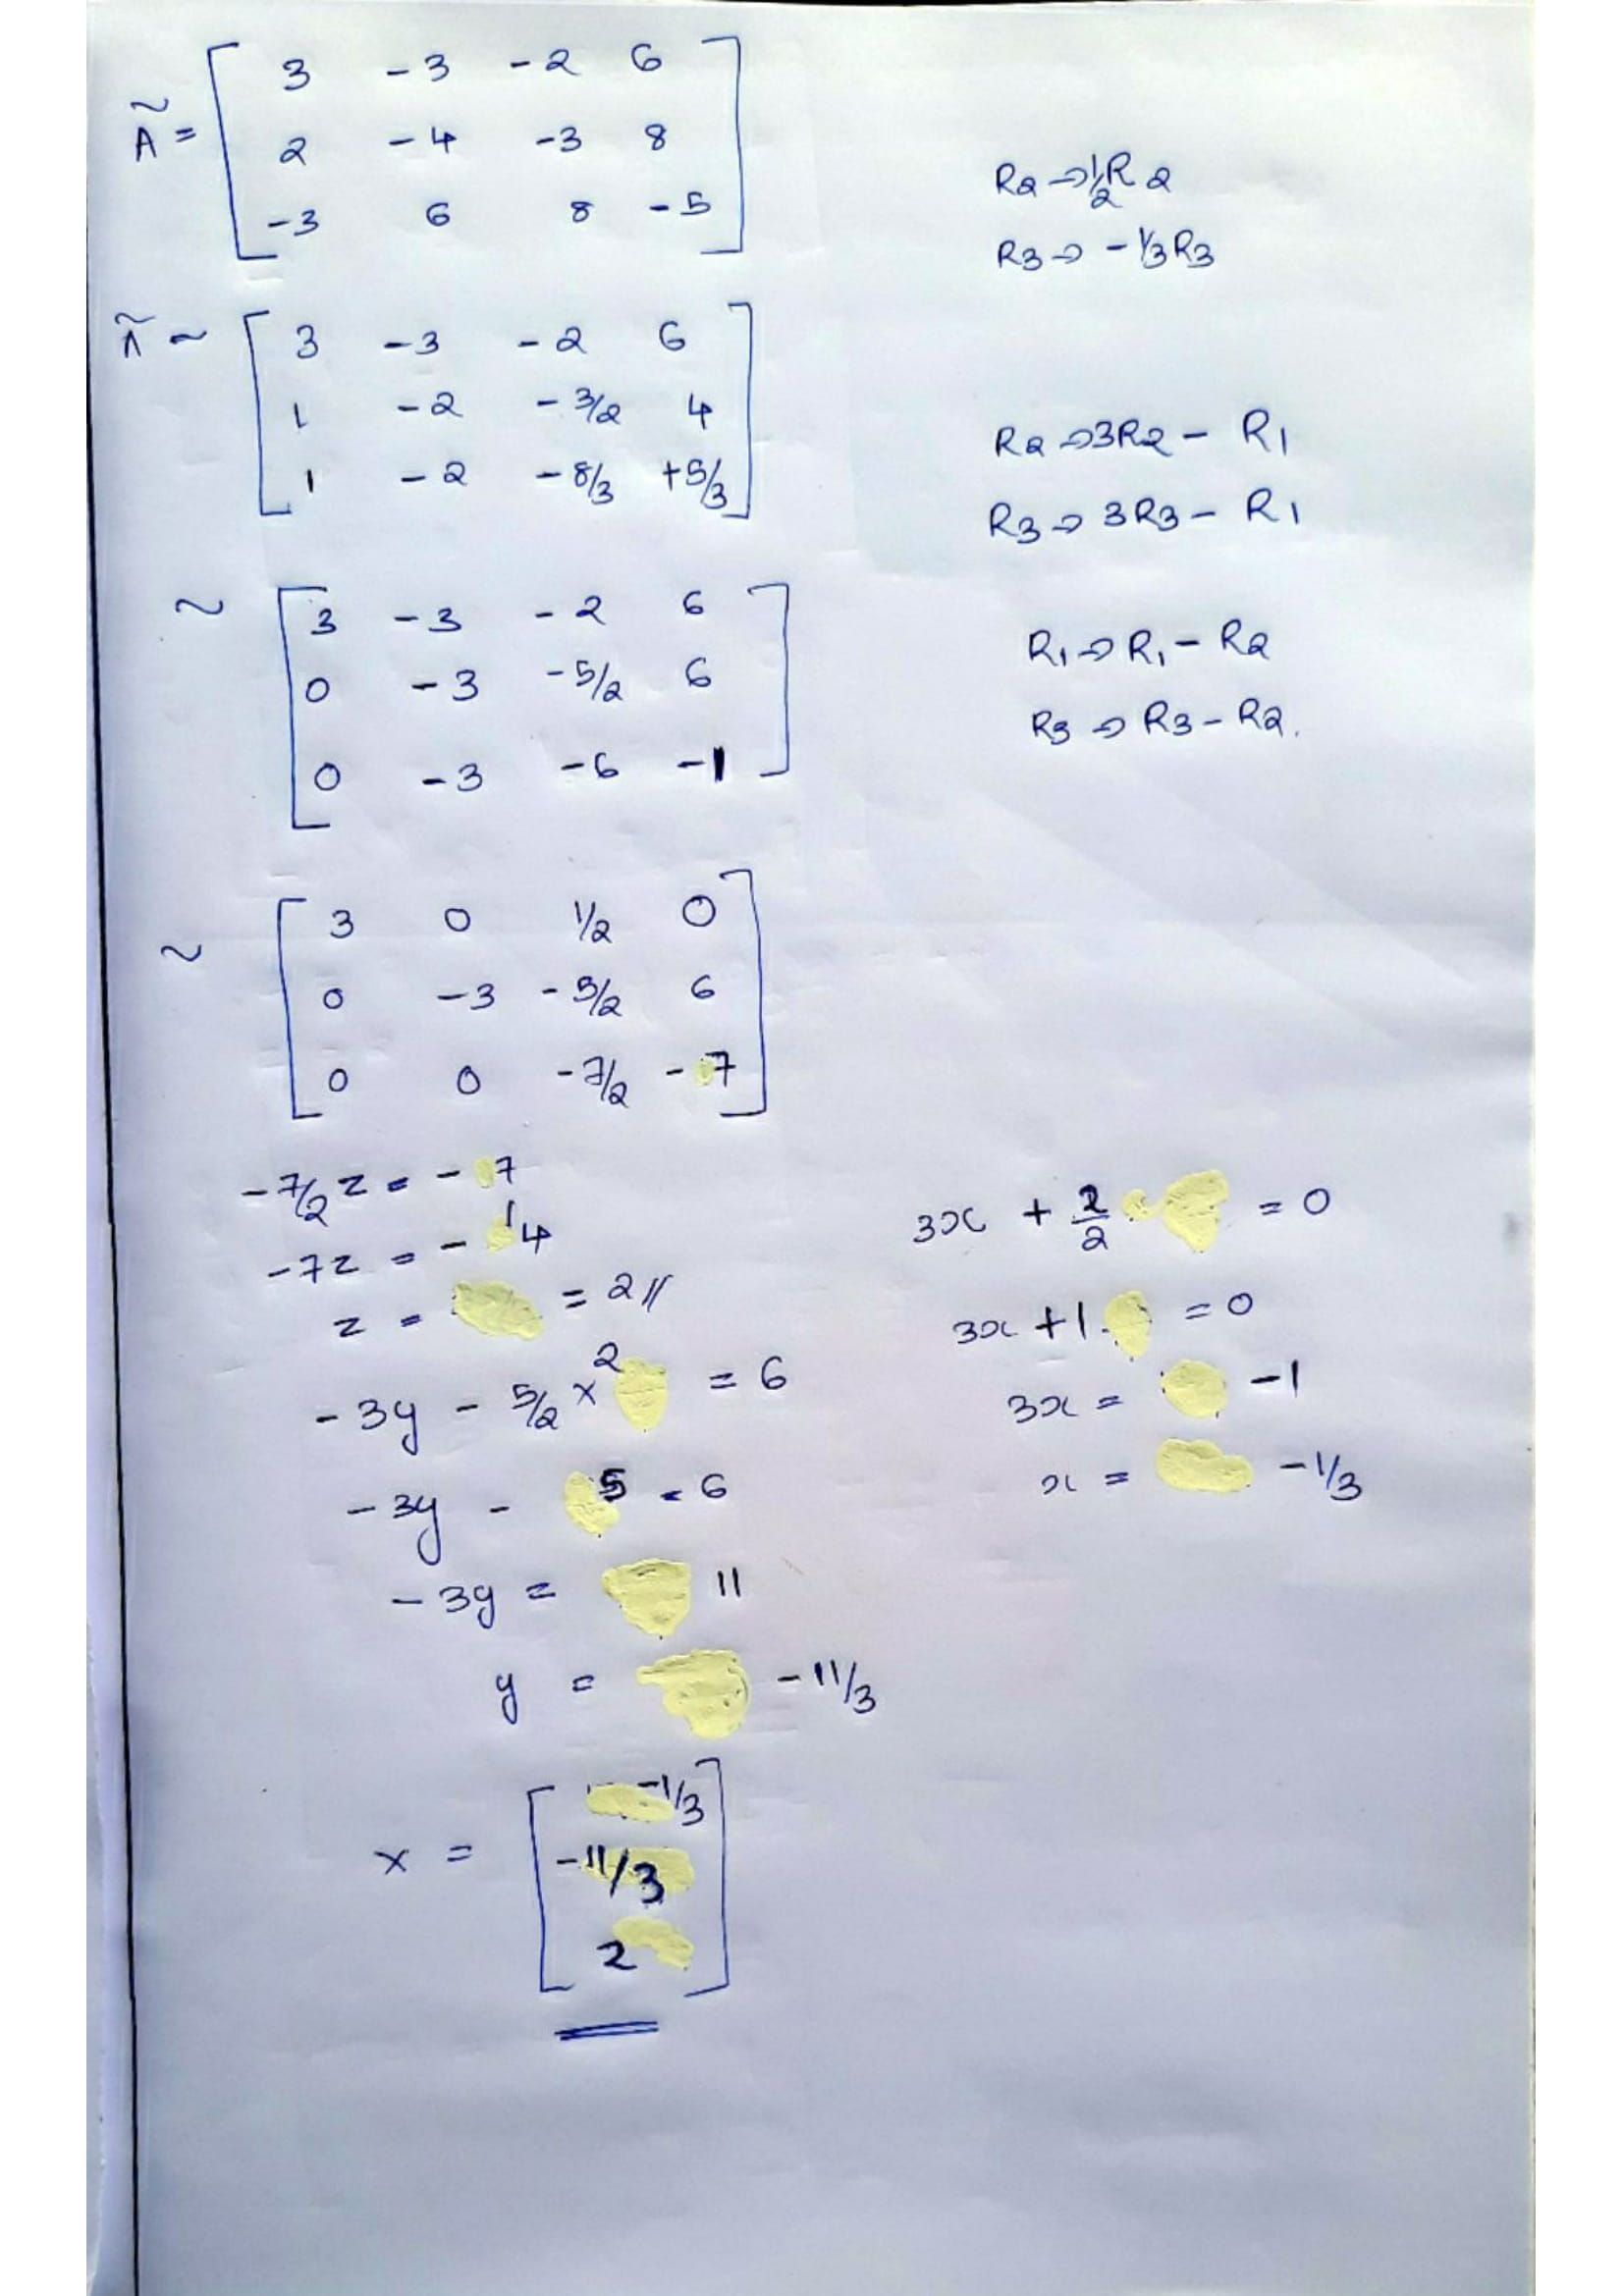 Ã = [ 3 -3 -2 6
2 -4 -3 8
-3 6 8 -5 ]
R2 → 1/2 R2
R3 → -1/3 R3
Ã ~ [ 3 -3 -2 6
1 -2 -3/2 4
1 -2 -8/3 +5/3 ]
R2 → 3R2 - R1
R3 → 3R3 - R1
~ [ 3 -3 -2 6
0 -3 -5/2 6
0 -3 -6 -1 ]
R1 → R1 - R2
R3 → R3 - R2.
~ [ 3 0 1/2 0
0 -3 -5/2 6
0 0 -7/2 -7 ]
-7/2 z = -7
-7z = -14
z = = 2//
-3y - 5/2 × 2 = 6
-3y - 5 = 6
-3y = 11
y = -11/3
3x + 2/2 = 0
3x + 1 = 0
3x = -1
x = -1/3
x = [ -1/3
-11/3
2 ]